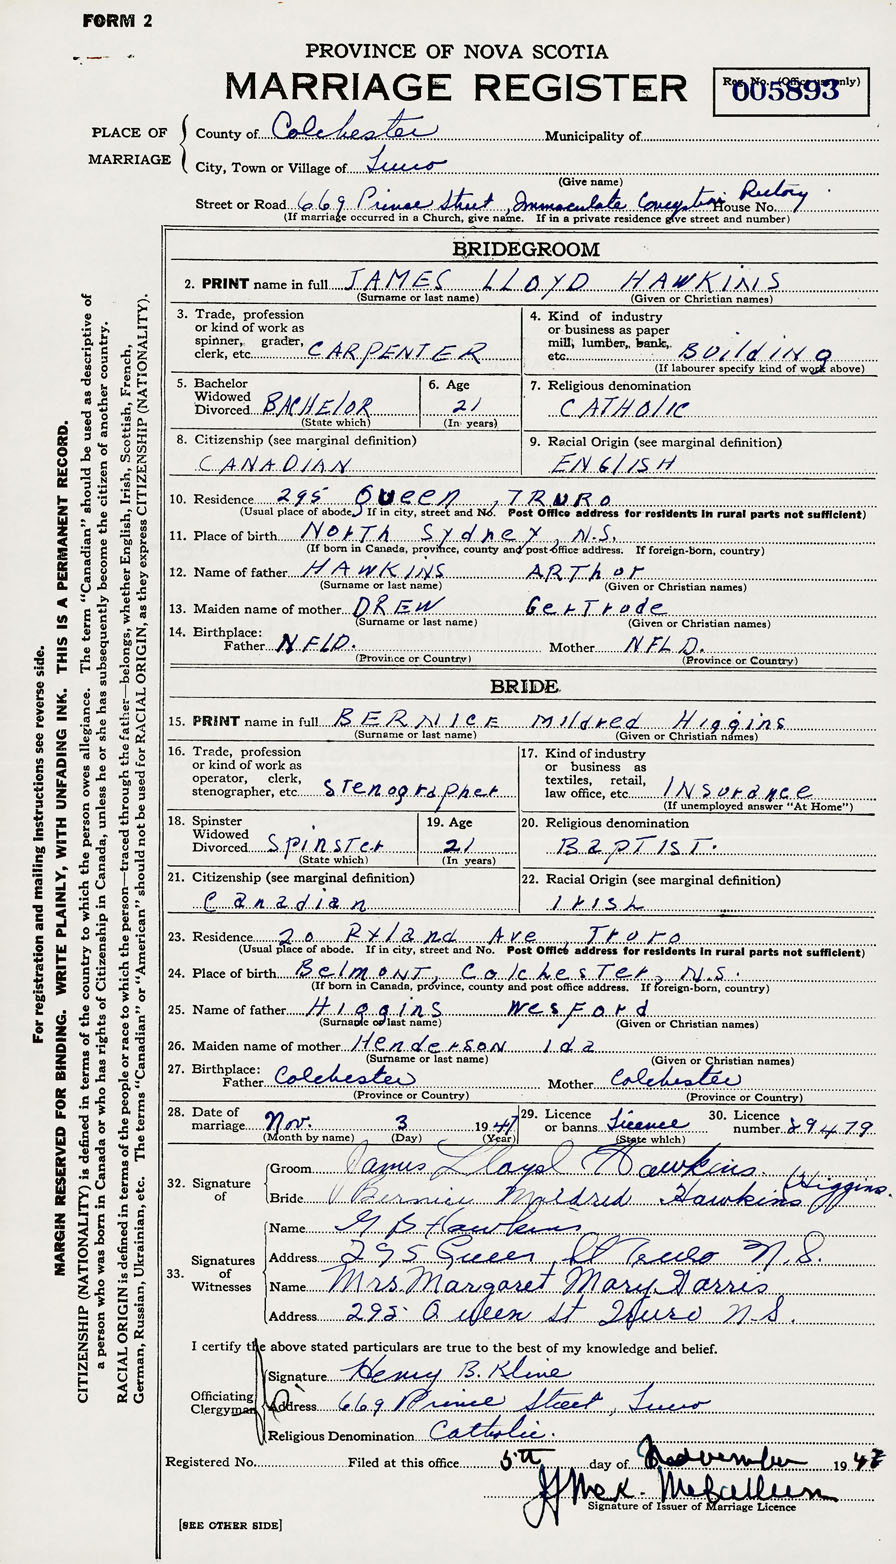 FORM 2
PROVINCE OF NOVA SCOTIA
MARRIAGE REGISTER
Reg. No. (Office use only)
005893
PLACE OF MARRIAGE
County of Colchester Municipality of
City, Town or Village of Truro
(Give name)
Street or Road 669 Prince Street, Immaculate Conception Rectory House No.
(If marriage occurred in a Church, give name. If in a private residence give street and number)
BRIDEGROOM
2. PRINT name in full JAMES LLOYD HAWKINS
(Surname or last name) (Given or Christian names)
3. Trade, profession or kind of work as spinner, grader, clerk, etc. CARPENTER
4. Kind of industry or business as paper mill, lumber, bank, etc. Building
(If labourer specify kind of work above)
5. Bachelor Widowed Divorced BACHElOR
(State which)
6. Age 21
(In years)
7. Religious denomination CATHOlIC
8. Citizenship (see marginal definition) CANADIAN
9. Racial Origin (see marginal definition) ENGlISH
10. Residence 295 QUEEN, TRURO
(Usual place of abode. If in city, street and No. Post Office address for residents in rural parts not sufficient)
11. Place of birth North Sydney, N.S.
(If born in Canada, province, county and post office address. If foreign-born, country)
12. Name of father HAWKINS ARThur
(Surname or last name) (Given or Christian names)
13. Maiden name of mother DREW GerTrude
(Surname or last name) (Given or Christian names)
14. Birthplace: Father NFLD. Mother NFLD.
(Province or Country) (Province or Country)
BRIDE
15. PRINT name in full BERNICE Mildred Higgins
(Surname or last name) (Given or Christian names)
16. Trade, profession or kind of work as operator, clerk, stenographer, etc. Stenographer
17. Kind of industry or business as textiles, retail, law office, etc. INSurance
(If unemployed answer "At Home")
18. Spinster Widowed Divorced Spinster
(State which)
19. Age 21
(In years)
20. Religious denomination BapTIST.
21. Citizenship (see marginal definition) Canadian
22. Racial Origin (see marginal definition) IRISH
23. Residence 20 Ryland Ave Truro
(Usual place of abode. If in city, street and No. Post Office address for residents in rural parts not sufficient)
24. Place of birth BelmonT, ColchesTer, N.S.
(If born in Canada, province, county and post office address. If foreign-born, country)
25. Name of father Higgins Wesford
(Surname or last name) (Given or Christian names)
26. Maiden name of mother Henderson Ida
(Surname or last name) (Given or Christian names)
27. Birthplace: Father Colchester Mother Colchester
(Province or Country) (Province or Country)
28. Date of marriage Nov. 3 1947
(Month by name) (Day) (Year)
29. Licence or banns Licence
(State which)
30. Licence number 29479
32. Signature of
Groom James Lloyd Hawkins
Bride Bernice Mildred Hawkins (Higgins)
33. Signatures of Witnesses
Name G B Hawkins
Address 295 Queen St Truro N.S.
Name Mrs. Margaret Mary Harris
Address 295 Queen St Truro N.S.
I certify the above stated particulars are true to the best of my knowledge and belief.
Officiating Clergyman
Signature Henry B. Kline
Address 669 Prince Street, Truro
Religious Denomination Catholic.
Registered No. Filed at this office 5th day of November 1947
McCallum
Signature of Issuer of Marriage Licence
[SEE OTHER SIDE]
For registration and mailing instructions see reverse side.
MARGIN RESERVED FOR BINDING. WRITE PLAINLY, WITH UNFADING INK. THIS IS A PERMANENT RECORD.
CITIZENSHIP (NATIONALITY) is defined in terms of the country to which the person owes allegiance. The term "Canadian" should be used as descriptive of
a person who was born in Canada or who has rights of Citizenship in Canada, unless he or she has subsequently become the citizen of another country.
RACIAL ORIGIN is defined in terms of the people or race to which the person—traced through the father—belongs, whether English, Irish, Scottish, French,
German, Russian, Ukrainian, etc. The terms "Canadian" or "American" should not be used for RACIAL ORIGIN, as they express CITIZENSHIP (NATIONALITY).